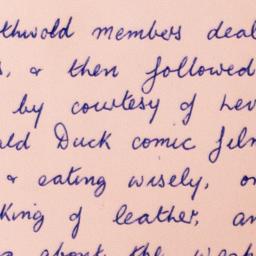 thwold members deal
s, & then followed
by courtesy of Lev
ald Duck comic film
& eating wisely, o
king of leather, an
about the wash